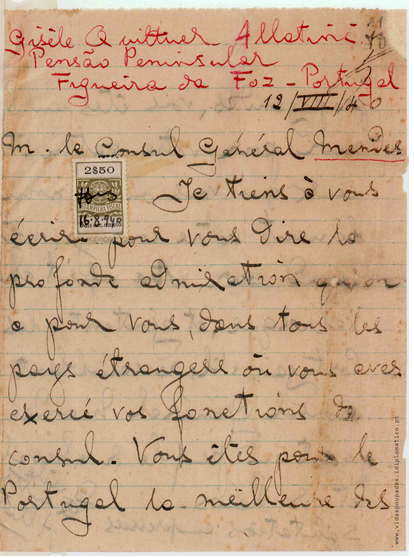 Gisèle Quittner Allatini
Pensão Peninsular
Figueira da Foz - Portugal
12/VIII/40
M. le Consul Général Mendes
2$50
16.8.940
Je tiens à vous
écrire pour vous dire la
profonde admiration qu'on
a pour vous, dans tous les
pays étrangers où vous aves
exercé vos fonctions de
consul. Vous êtes pour le
Portugal la meilleure des
www.vidaspoupadas.idiplomatico.pt